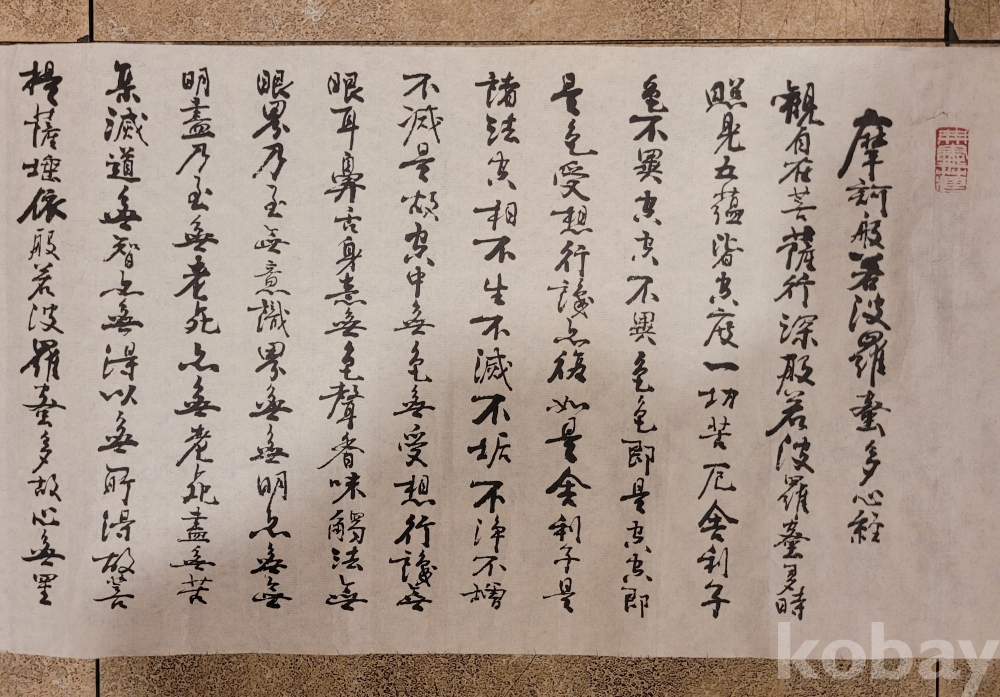 摩訶般若波羅蜜多心經
觀自在菩薩行深般若波羅蜜多時
照見五蘊皆空度一切苦厄舍利子
色不異空空不異色色即是空空即
是色受想行識亦復如是舍利子是
諸法空相不生不滅不垢不淨不增
不減是故空中無色無受想行識無
眼耳鼻舌身意無色聲香味觸法無
眼界乃至無意識界無無明亦無無
明盡乃至無老死亦無老死盡無苦
集滅道無智亦無得以無所得故菩
提薩埵依般若波羅蜜多故心無罣
kobay